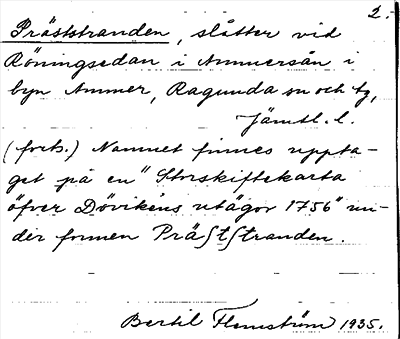 2.
Präststranden, slåtter vid
Röningsedan i Ammersån i
byn Ammer, Ragunda sn och tg,
Jämtl. l.
(forts.) Namnet finnes uppta-
get på en "Storskifteskarta
öfver Dövikens utägor 1756" un-
der formen Präſtſtranden.
Bertil Flemström 1935.